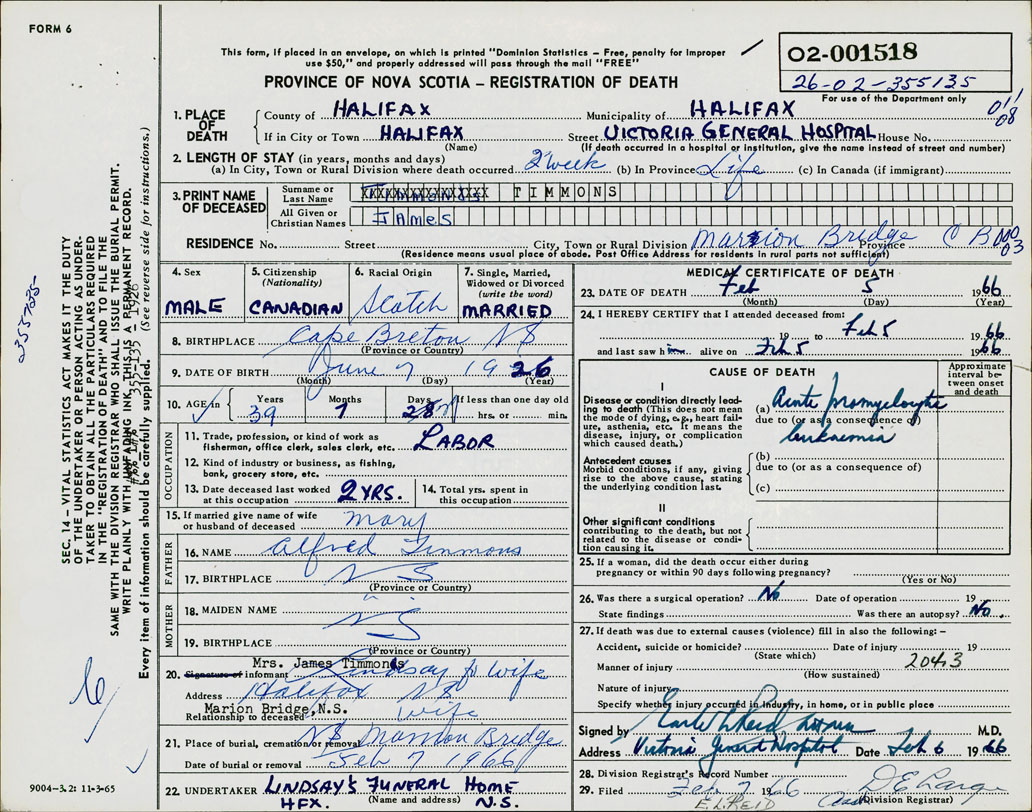 FORM 6
This form, if placed in an envelope, on which is printed "Dominion Statistics – Free, penalty for improper
use $50," and properly addressed will pass through the mail "FREE"
PROVINCE OF NOVA SCOTIA – REGISTRATION OF DEATH
02-001518
26-02-355135
For use of the Department only
011
08
1. PLACE OF DEATH
County of HALIFAX Municipality of HALIFAX
If in City or Town HALIFAX Street VICTORIA GENERAL HOSPITAL House No.
(Name) (If death occurred in a hospital or institution, give the name instead of street and number)
2. LENGTH OF STAY (in years, months and days)
(a) In City, Town or Rural Division where death occurred 2 week (b) In Province Life (c) In Canada (if immigrant)
3. PRINT NAME OF DECEASED
Surname or Last Name TIMMONS
All Given or Christian Names JAMES
RESIDENCE No. Street City, Town or Rural Division Marion Bridge Province C B
03
(Residence means usual place of abode. Post Office Address for residents in rural parts not sufficient)
4. Sex
MALE
5. Citizenship
(Nationality)
CANADIAN
6. Racial Origin
Scotch
7. Single, Married,
Widowed or Divorced
(write the word)
MARRIED
8. BIRTHPLACE Cape Breton NS
(Province or Country)
9. DATE OF BIRTH June 7 1926
(Month) (Day) (Year)
10. AGE in Years Months Days If less than one day old
39 7 28 hrs. or min.
OCCUPATION
11. Trade, profession, or kind of work as
fisherman, office clerk, sales clerk, etc. LABOR
12. Kind of industry or business, as fishing,
bank, grocery store, etc.
13. Date deceased last worked
at this occupation 2 YRS.
14. Total yrs. spent in
this occupation
15. If married give name of wife
or husband of deceased Mary
FATHER
16. NAME Alfred Timmons
17. BIRTHPLACE NS
(Province or Country)
MOTHER
18. MAIDEN NAME "
19. BIRTHPLACE NS
(Province or Country)
Mrs. James Timmons
20. Signature of informant Lindsay wife
Address Halifax NS
Marion Bridge, N.S.
Relationship to deceased wife
21. Place of burial, cremation or removal NS Marion Bridge
Date of burial or removal Feb 7 1966
22. UNDERTAKER LINDSAY'S FUNERAL HOME
HFX. (Name and address) N.S.
MEDICAL CERTIFICATE OF DEATH
23. DATE OF DEATH Feb 5 1966
(Month) (Day) (Year)
24. I HEREBY CERTIFY that I attended deceased from:
19 to Feb 5 1966
and last saw him alive on Feb 5 1966
CAUSE OF DEATH
Approximate
interval between onset
and death
I
Disease or condition directly leading to death (This does not mean
the mode of dying, e.g., heart failure, asthenia, etc. It means the
disease, injury, or complication
which caused death.)
(a) Acute promyelocytic
due to (or as a consequence of)
leukaemia
Antecedent causes
Morbid conditions, if any, giving
rise to the above cause, stating
the underlying condition last.
(b)
due to (or as a consequence of)
(c)
II
Other significant conditions
contributing to the death, but not
related to the disease or condition causing it.
25. If a woman, did the death occur either during
pregnancy or within 90 days following pregnancy?
(Yes or No)
26. Was there a surgical operation? No Date of operation 19
State findings Was there an autopsy? No.
27. If death was due to external causes (violence) fill in also the following: –
Accident, suicide or homicide? Date of injury 19
(State which)
2043
Manner of injury
(How sustained)
Nature of injury
Specify whether injury occurred in industry, in home, or in public place
Signed by Earle L Reid M.D.
Address Victoria General Hospital Date Feb 6 1966
28. Division Registrar's Record Number
29. Filed Feb 7 1966
E. L. REID
(Division Registrar)
SEC. 14 – VITAL STATISTICS ACT MAKES IT THE DUTY
OF THE UNDERTAKER OR PERSON ACTING AS UNDERTAKER TO OBTAIN ALL THE PARTICULARS REQUIRED
IN THE "REGISTRATION OF DEATH" AND TO FILE THE
SAME WITH THE DIVISION REGISTRAR WHO SHALL ISSUE THE BURIAL PERMIT.
WRITE PLAINLY WITH UNFADING INK, THIS IS A PERMANENT RECORD.
Every item of information should be carefully supplied. (See reverse side for instructions.)
9004-3.2: 11-3-65